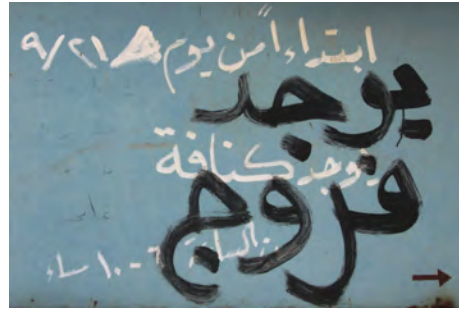 ابتداءاً من يوم ٩/٢١
يوجد
يوجد كنافة
فروج
من الساعة ٦-١٠ مساء